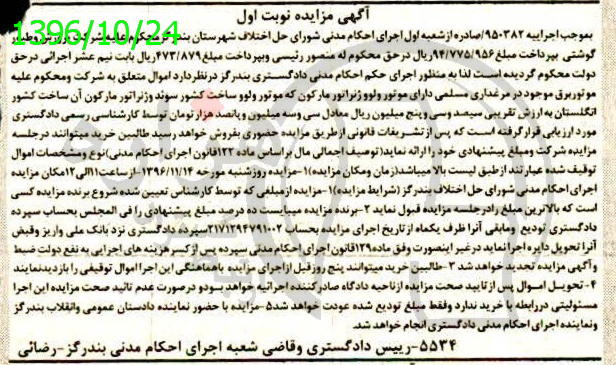 آگهی مزایده نوبت اول
1396/10/24
بموجب اجراییه ۹۵۰۳۸۲/صادره از شعبه اول اجرای احکام مدنی شورای حل اختلاف شهرستان بندرگز محکوم علیه شرکت پرورش وطیور
گوشتی بپرداخت مبلغ ۹۴/۷۷۵/۹۵۶ریال در حق محکوم له منصور رئیسی وبپرداخت مبلغ ۴۷۳/۸۷۹ریال بابت نیم عشر اجرائی در حق
دولت محکوم گردیده است لذا به منظور اجرای حکم اجرای احکام مدنی دادگستری بندرگز در نظر دارد اموال متعلق به شرکت ومحکوم علیه
موتور برق موجود در مرغداری مسلمی دارای موتور ولوو ژنراتور مارکون که موتور ولوو ساخت کشور سوئد وژنراتور مارکون آن ساخت کشور
انگلستان به ارزش تقریبی سیصد وسی وپنج میلیون ریال معادل سی وسه میلیون و پانصد هزار تومان توسط کارشناسی رسمی دادگستری
مورد ارزیابی قرار گرفته است که پس از تشریفات قانونی از طریق مزایده حضوری بفروش خواهد رسید طالبین خرید میتوانند در جلسه
مزایده شرکت ومبلغ پیشنهادی خود را ارائه نماید(توصیف اجمالی مال بر اساس ماده ۱۲۲قانون اجرای احکام مدنی)نوع ومشخصات اموال
توقیف شده عبارتند از طبق لیست بالا میباشد(زمان ومکان مزایده)۱-مزایده روزشنبه مورخه ۱۳۹۶/۱۱/۱۴-از ساعت۱۱الی۱۲مکان مزایده
اجرای احکام مدنی شورای حل اختلاف بندرگز (شرایط مزایده)۱-مزایده از مبلغی که توسط کارشناس تعیین شده شروع برنده مزایده کسی
است که بالاترین مبلغ را در جلسه مزایده قبول نماید ۲-برنده مزایده میبایست ده درصد مبلغ پیشنهادی را فی المجلس بحساب سپرده
دادگستری تودیع ومابقی آنرا ظرف یکماه از تاریخ اجرای مزایده بحساب ۲۱۷۱۲۹۴۷۹۱۰۰۲سپرده دادگستری نزد بانک ملی واریز وقبض
آنرا تحویل دایره اجرا نماید در غیر اینصورت وفق ماده۱۲۹قانون اجرای احکام مدنی سپرده پس از کسر هزینه های اجرایی به نفع دولت ضبط
و آگهی مزایده تجدید خواهد شد ۳-طالبین خرید میتوانند پنج روز قبل از اجرای مزایده باهماهنگی این اجرا اموال توقیفی را بازدیدنمایند
۴-تحویل اموال پس از تایید صحت مزایده از ناحیه دادگاه صادرکننده اجرائیه خواهد بود و در صورت عدم تائید صحت مزایده این اجرا
مسئولیتی در رابطه با خرید ندارد وفقط مبلغ تودیع شده عودت خواهد شد۵-مزایده با حضور نماینده دادستان عمومی وانقلاب بندرگز
ونماینده اجرای احکام مدنی دادگستری انجام خواهد شد.
۵۵۳۴-رییس دادگستری وقاضی شعبه اجرای احکام مدنی بندرگز-رضائی